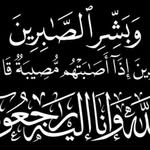 وَبَشِّرِ الصَّابِرِينَ
ذِينَ إِذَا أَصَابَتْهُم مُّصِيبَةٌ قَا
لِلَّهِ وَإِنَّا إِلَيْهِ رَاجِعُو